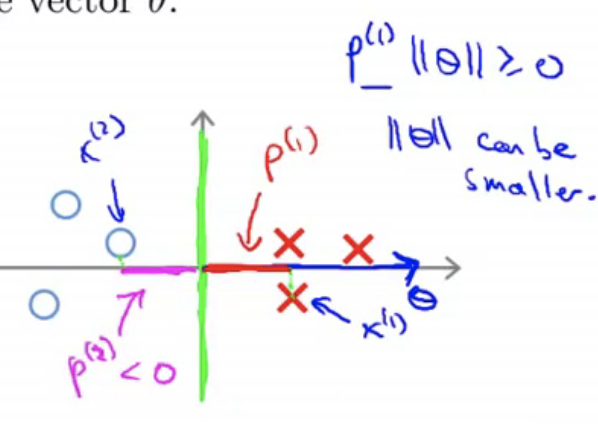 e vector θ.
p⁽¹⁾ ||θ|| ≥ 0
||θ|| can be
smaller.
x⁽²⁾
p⁽¹⁾
θ
x⁽¹⁾
p⁽²⁾ < 0